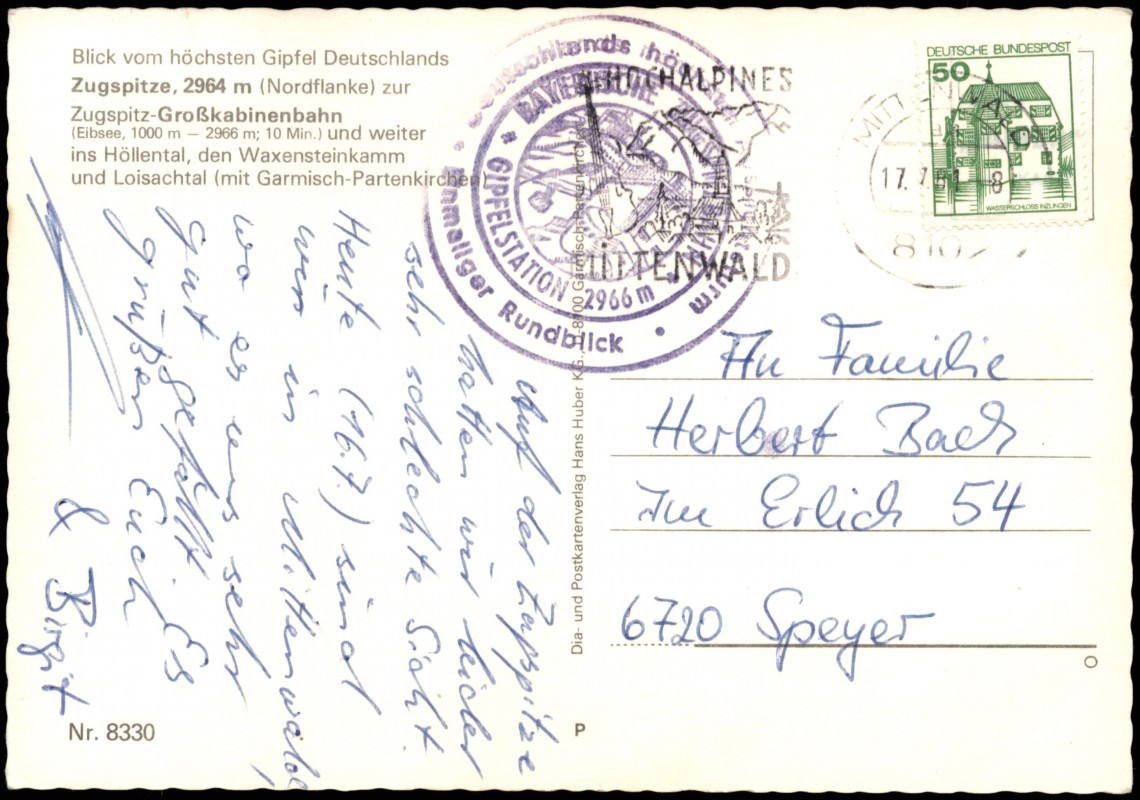 Blick vom höchsten Gipfel Deutschlands
Zugspitze, 2964 m (Nordflanke) zur
Zugspitz-Großkabinenbahn
(Eibsee, 1000 m — 2966 m; 10 Min.) und weiter
ins Höllental, den Waxensteinkamm
und Loisachtal (mit Garmisch-Partenkirchen)
Einmaliger Rundblick
GIPFELSTATION 2966 m
HOCHALPINES
MITTENWALD
DEUTSCHE BUNDESPOST
50
WASSERSCHLOSS INZLINGEN
MITTENWALD
8102
Auf der Zugspitze
hatten wir leider
sehr schlechte Sicht.
Heute (16.7) sind
wir in Mittenwald,
wo es uns sehr
gut gefällt. Es
grüßen Euch
& Birgit
Dia- und Postkartenverlag Hans Huber KG.
An Familie
Herbert Bach
Im Erlich 54
6720 Speyer
Nr. 8330
P